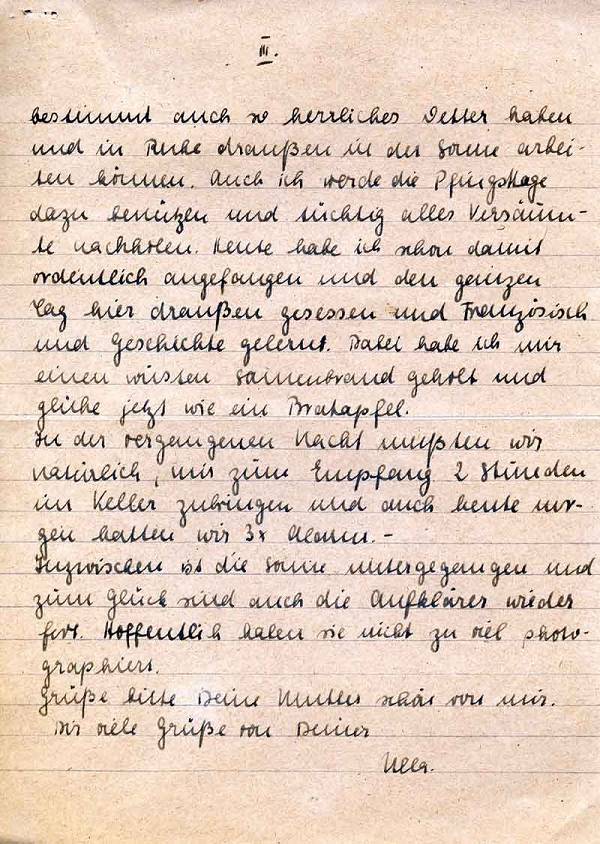 III.
bestimmt auch so herrliches Wetter haben
und in Ruhe draußen in der Sonne arbei-
ten können. Auch ich werde die Pfingsttage
dazu benützen und tüchtig alles Versäum-
te nachholen. Heute habe ich schon damit
ordentlich angefangen und den ganzen
Tag hier draußen gesessen und Französisch
und Geschichte gelernt. Dabei habe ich mir
einen wüsten Sonnenbrand geholt und
glühe jetzt wie ein Bratapfel.
In der vergangenen Nacht mußten wir
natürlich, mir zum Empfang 2 Stunden
im Keller zubringen und auch heute mor-
gen hatten wir 3x Alarm. -
Inzwischen ist die Sonne untergegangen und
zum Glück sind auch die Aufklärer wieder
fort. Hoffentlich haben sie nicht zu viel photo-
graphiert.
Grüße bitte Deine Mutter schön von mir.
Dir viele Grüße von Deiner
Ulla.